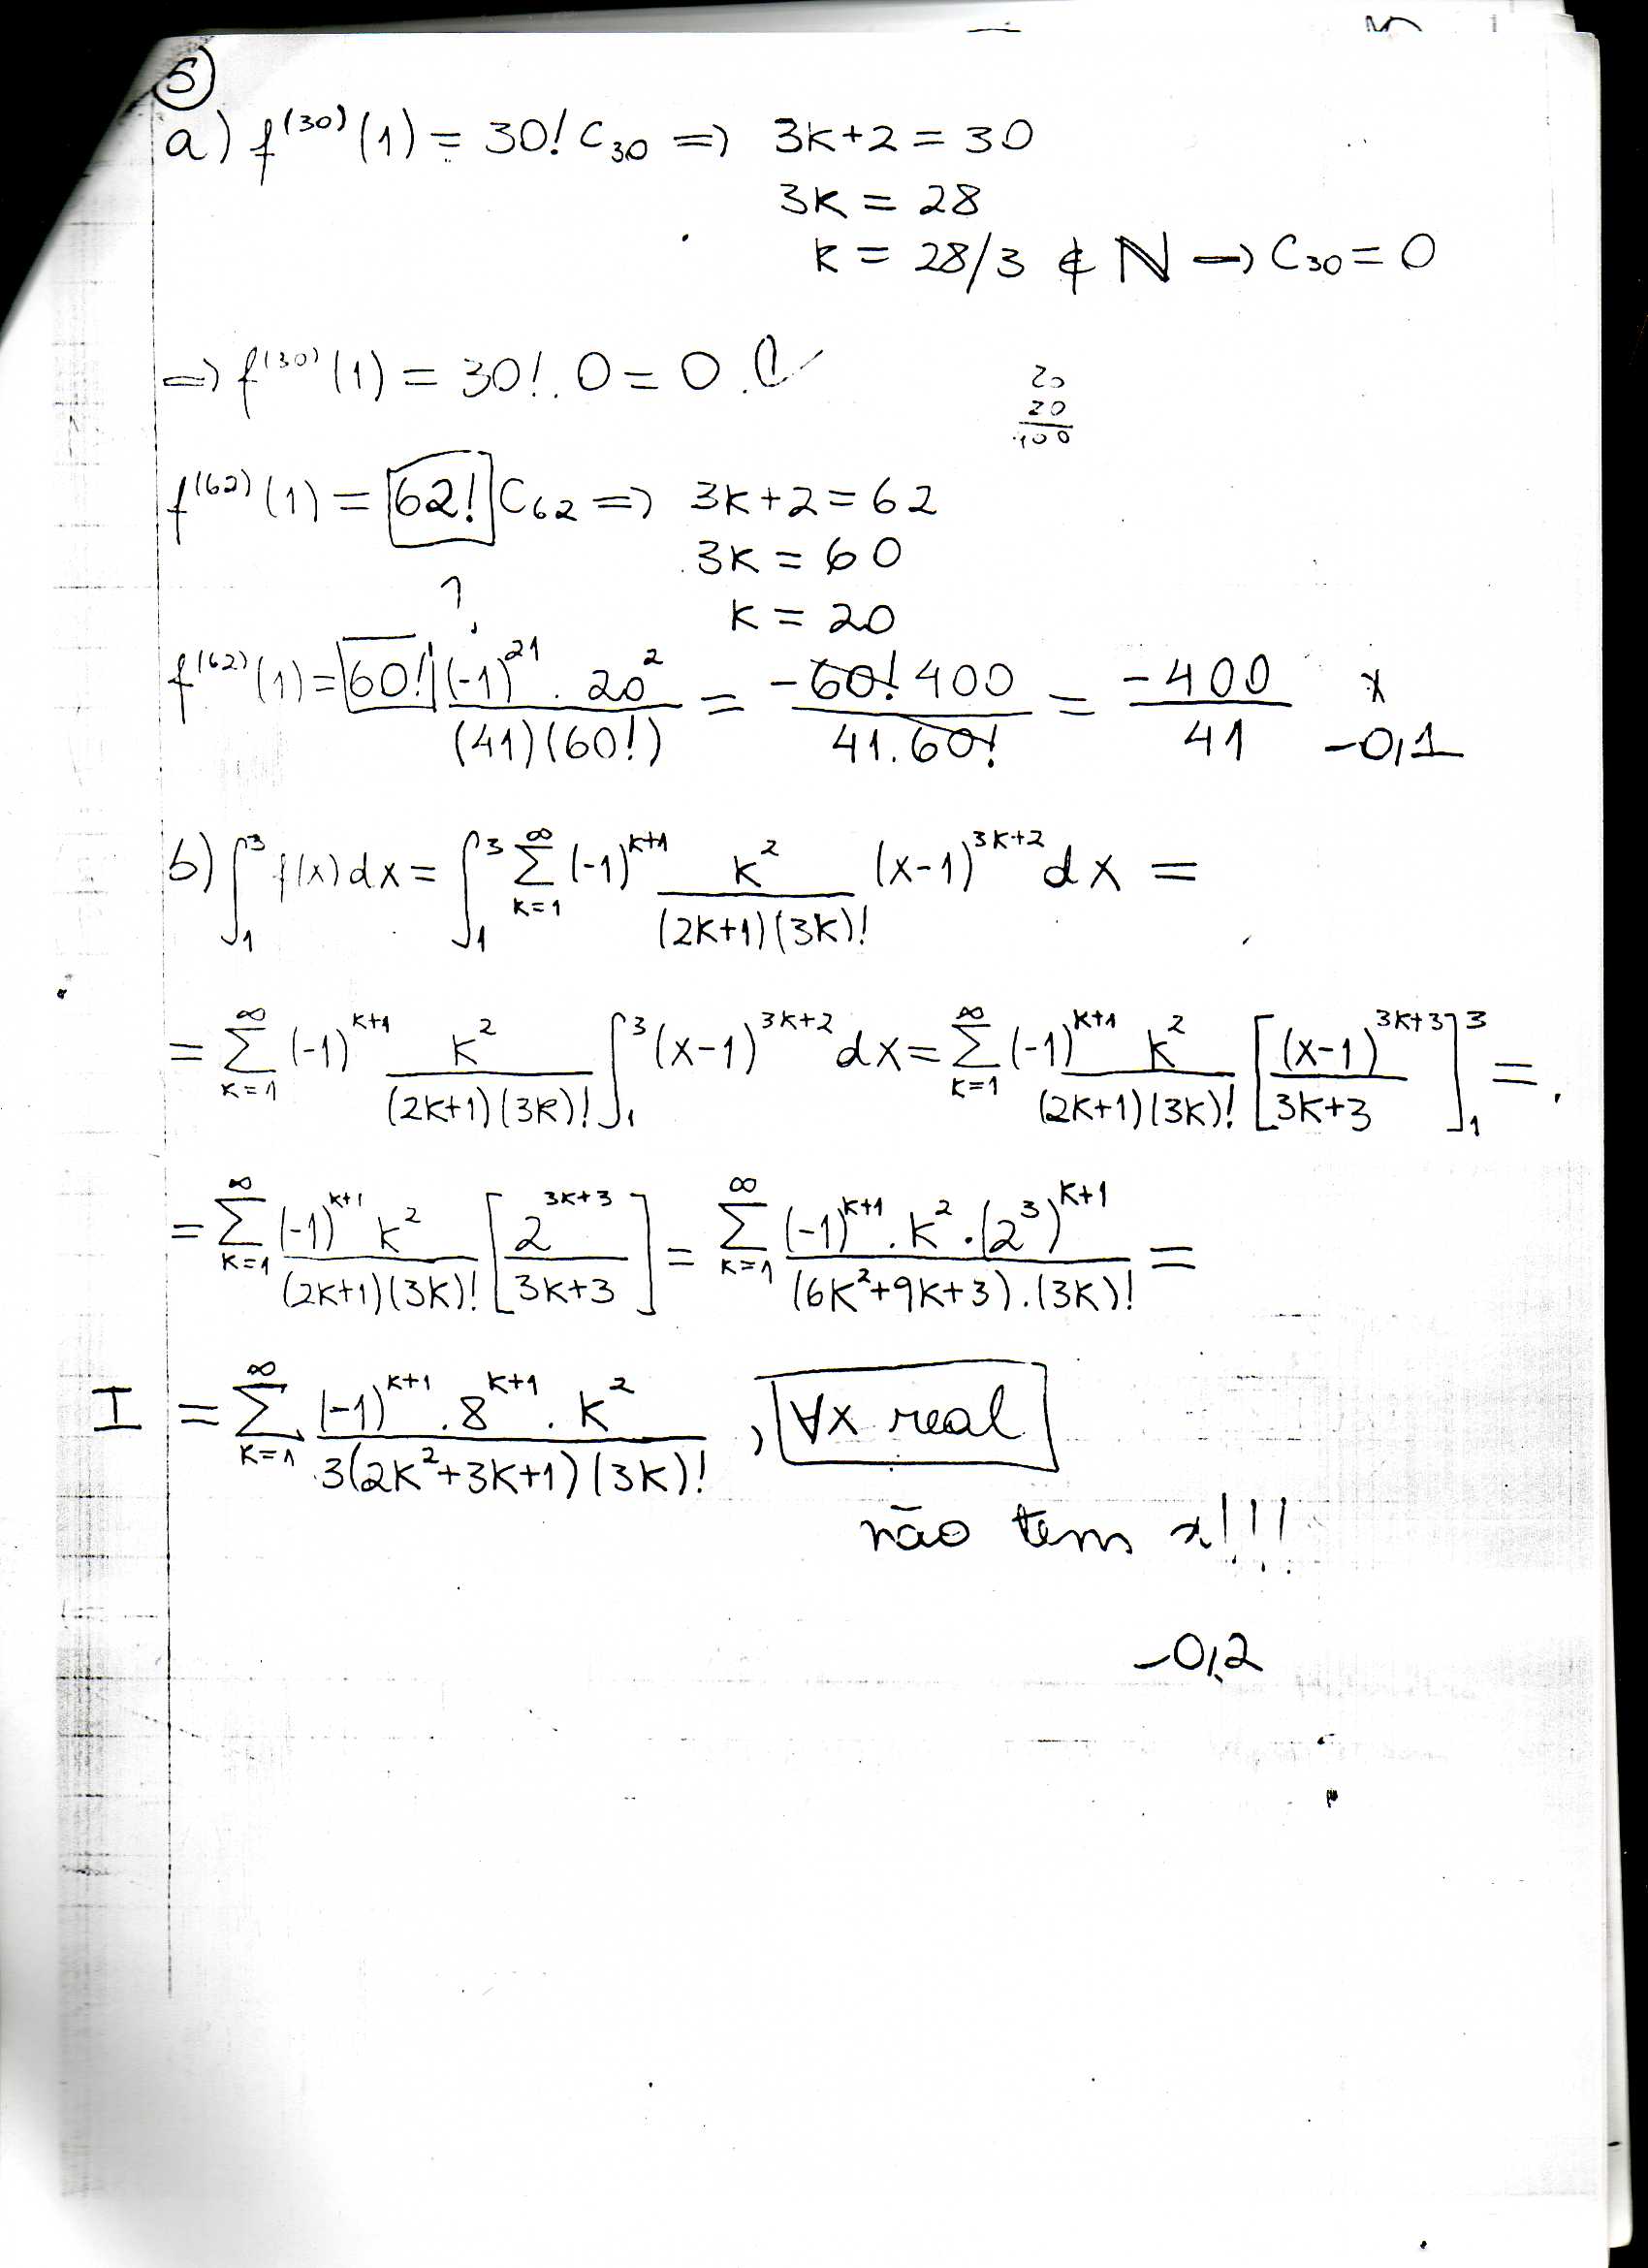 5
a) f⁽³⁰⁾(1) = 30! C₃₀ => 3k+2 = 30
3k = 28
k = 28/3 ∉ ℕ → C₃₀ = 0
=> f⁽³⁰⁾(1) = 30!. 0 = 0.
20
20
100
f⁽⁶²⁾(1) = 62! C₆₂ => 3k+2 = 62
3k = 60
k = 20
?
f⁽⁶²⁾(1) = 60! (-1)²¹ . 20² / (41)(60!) = -60! 400 / 41.60! = -400 / 41 x
-0,1
b) ∫₁³ f(x)dx = ∫₁³ ∑_{k=1}^{∞} (-1)^{k+1} k² / (2k+1)(3k)! (x-1)^{3k+2} dx =
= ∑_{k=1}^{∞} (-1)^{k+1} k² / (2k+1)(3k)! ∫₁³ (x-1)^{3k+2} dx = ∑_{k=1}^{∞} (-1)^{k+1} k² / (2k+1)(3k)! [(x-1)^{3k+3} / 3k+3]₁³ =
= ∑_{k=1}^{∞} (-1)^{k+1} k² / (2k+1)(3k)! [2^{3k+3} / 3k+3] = ∑_{k=1}^{∞} (-1)^{k+1} . k² . (2³)^{k+1} / (6k²+9k+3).(3k)! =
I = ∑_{k=1}^{∞} (-1)^{k+1} . 8^{k+1} . k² / 3(2k²+3k+1)(3k)! , ∀x real
não tem x!!!
-0,2